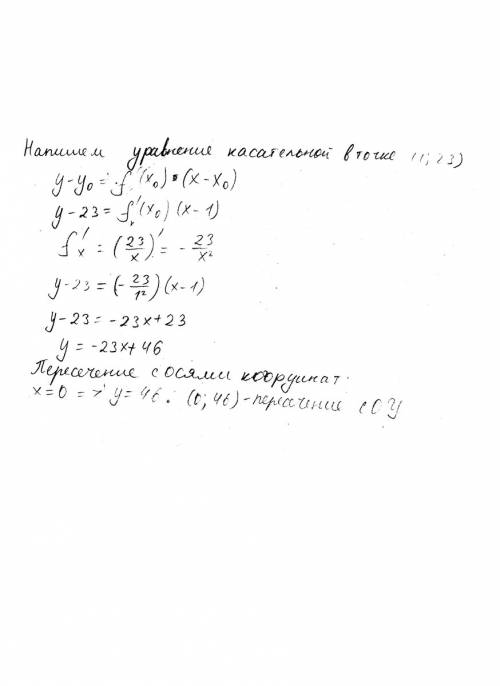 Напишем уравнение касательной в точке (1; 23)
y-y₀ = f'(x₀)•(x-x₀)
y-23 = f'(x₀)(x-1)
f'ₓ = (23/x)' = -23/x²
y-23 = (-23/1²)(x-1)
y-23 = -23x+23
y = -23x+46
Пересечение с осями координат.
x=0 => y=46. (0; 46)-пересечение с OY